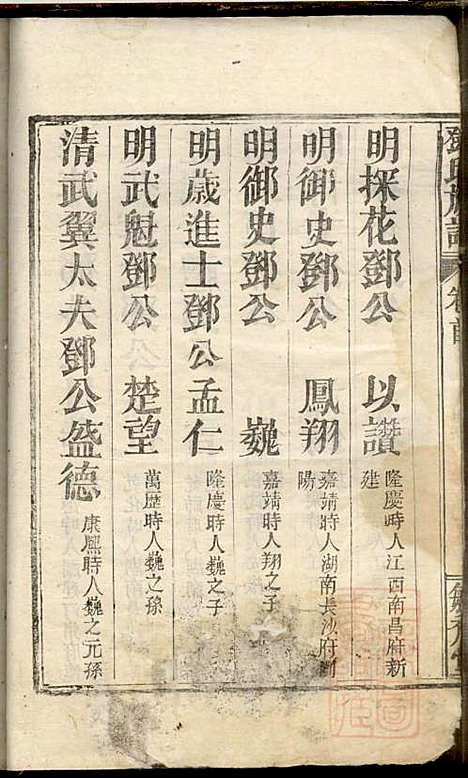 鄧氏族譜 卷首
明探花鄧公 以讚 隆慶時人江西南昌府新建
明御史鄧公 鳳翔 嘉靖時人湖南長沙府瀏陽
明御史鄧公 巍 嘉靖時人翔之子
明歲進士鄧公孟仁 隆慶時人巍之子
明武魁鄧公 楚望 萬歷時人巍之孫
清武翼大夫鄧公盛德 康熙時人巍之元孫